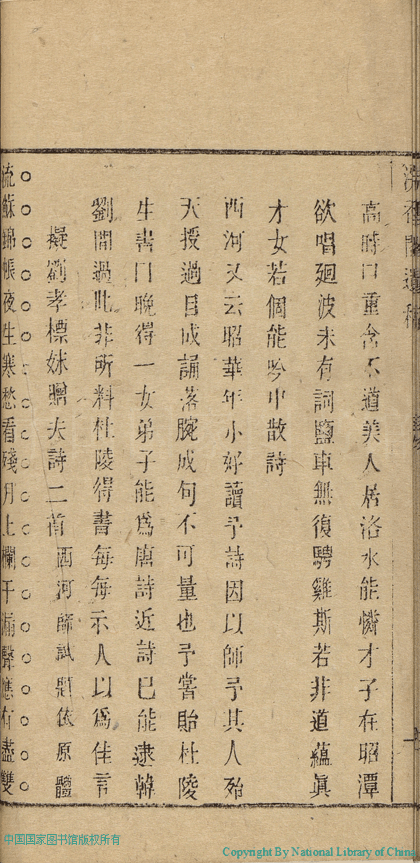 高時口重含不道美人居洛水能憐才子在昭潭
欲唱廻波未有詞鹽車無復騁雞斯若非道蘊眞
才女若個能吟中散詩
西河又云昭華年小好讀予詩因以師予其人殆
天授過目成誦落腕成句不可量也予嘗貽杜陵
生書曰晚得一女弟子能爲唐詩近詩已能逮韓
劉開過此非所料杜陵得書每每示人以爲佳言
擬劉孝標妹贈夫詩二首 西河師試題依原體
流蘇錦帳夜生寒愁看殘月上欄干漏聲應有盡雙
中国国家图书馆版权所有
Copyright By National Library of China